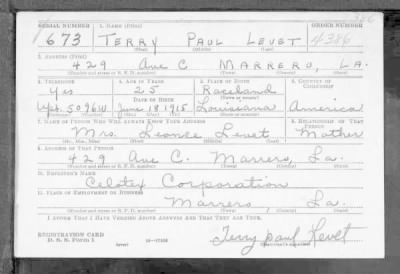 SERIAL NUMBER 1. NAME (Print) ORDER NUMBER
673 TERRY PAUL LEVET 4386
(First) (Middle) (Last)
2. ADDRESS (Print)
429 Ave C MARRERO, LA.
(Number and street or R. F. D. number) (Town) (County) (State)
3. TELEPHONE 4. AGE IN YEARS 5. PLACE OF BIRTH 6. COUNTRY OF CITIZENSHIP
Yes 25 Raceland
DATE OF BIRTH
5096W June 18 1915 Louisiana America
7. NAME OF PERSON WHO WILL ALWAYS KNOW YOUR ADDRESS 8. RELATIONSHIP OF THAT PERSON
Mrs. Leonce Levet Mother
(Mr., Mrs., Miss) (First) (Middle) (Last)
9. ADDRESS OF THAT PERSON
429 Ave C. Marrero, La.
(Number and street or R. F. D. number) (Town) (County) (State)
10. EMPLOYER'S NAME
Celotex Corporation
11. PLACE OF EMPLOYMENT OR BUSINESS
Marrero La.
(Number and street or R. F. D. number) (Town) (County) (State)
I AFFIRM THAT I HAVE VERIFIED ABOVE ANSWERS AND THAT THEY ARE TRUE.
REGISTRATION CARD
D. S. S. Form 1 (over) 16-17105 Terry Paul Levet
(Registrant's signature)